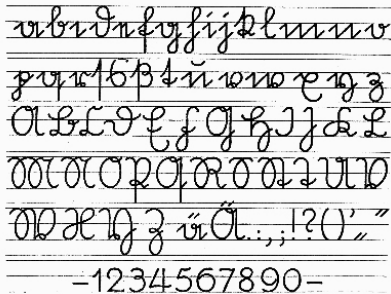 a b c d e f g h i j k l m n o
p q r ſ s ß t u v w x y z
A B C D E F G H I J K L
M N O P Q R S T U V
W X Y Z ü Ä . : , ; ! ? ( ) ' „ "
-1234567890-